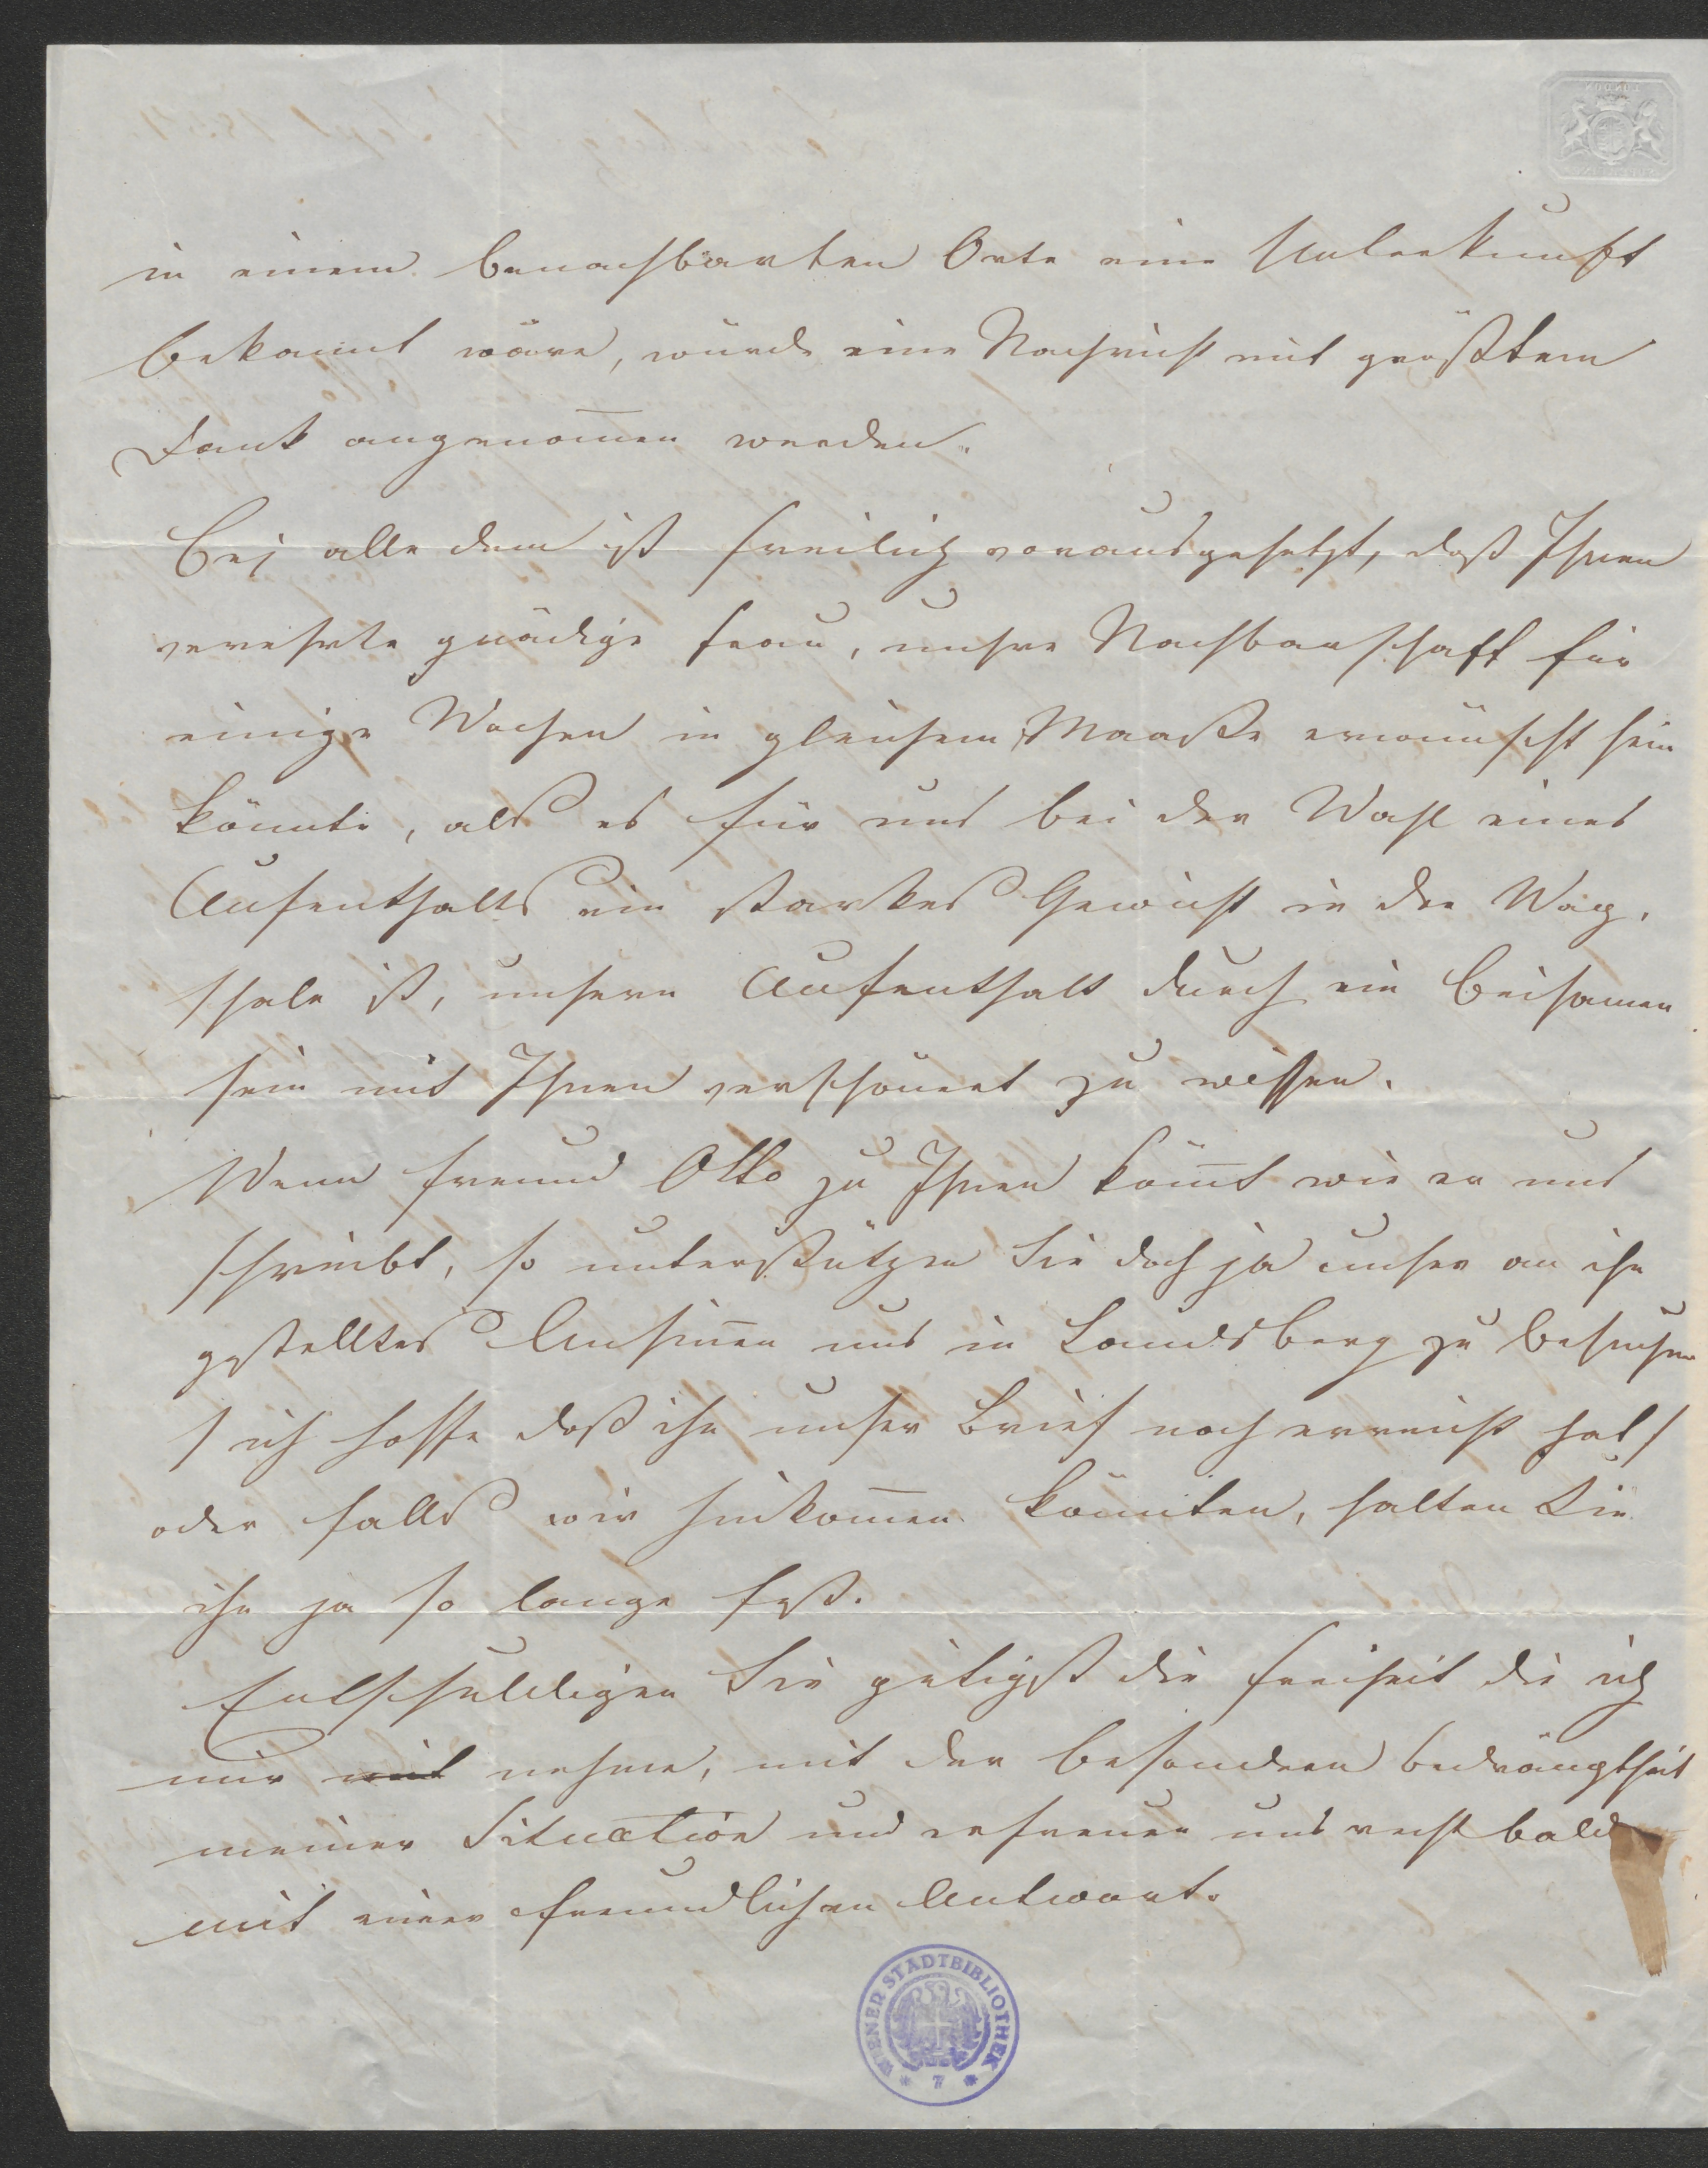 in einem benachbarten Orte eine Unterkunft
bekannt wäre, würde eine Nachricht mit größtem
Dank angenom̅en werden.
Bei alle dem ist freilich vorausgesetzt, daß Ihnen
verehrte gnädige Frau, unsre Nachbarschaft für
einige Wochen in gleichem Maaße erwünscht sein
könnte, als es für uns bei der Wahl eines
Aufenthalts ein starkes Gewicht in der Wag-
schale ist, unsern Aufenthalt durch ein Beisamen
sein mit Ihnen verschönert zu wissen.
Wenn Freund Otto zu Ihnen köm̅t wie er uns
schreibt, so unterstützen Sie doch ja unser an ihn
gestelltes Ansin̅en uns in Landsberg zu besuchen
/ ich hoffe daß ihn unser Brief noch erreicht hat /
oder falls wir hinkom̅en könnten, halten Sie
ihn ja so lange fest.
Entschuldigen Sie gütigst die Freiheit die ich
mir mit nehme, mit der besondern Bedrängtheit
meiner Situation und erfreuen uns recht bald
mit einer freundlichen Antwort.
WIENER STADTBIBLIOTHEK
* 7 *
LONDON